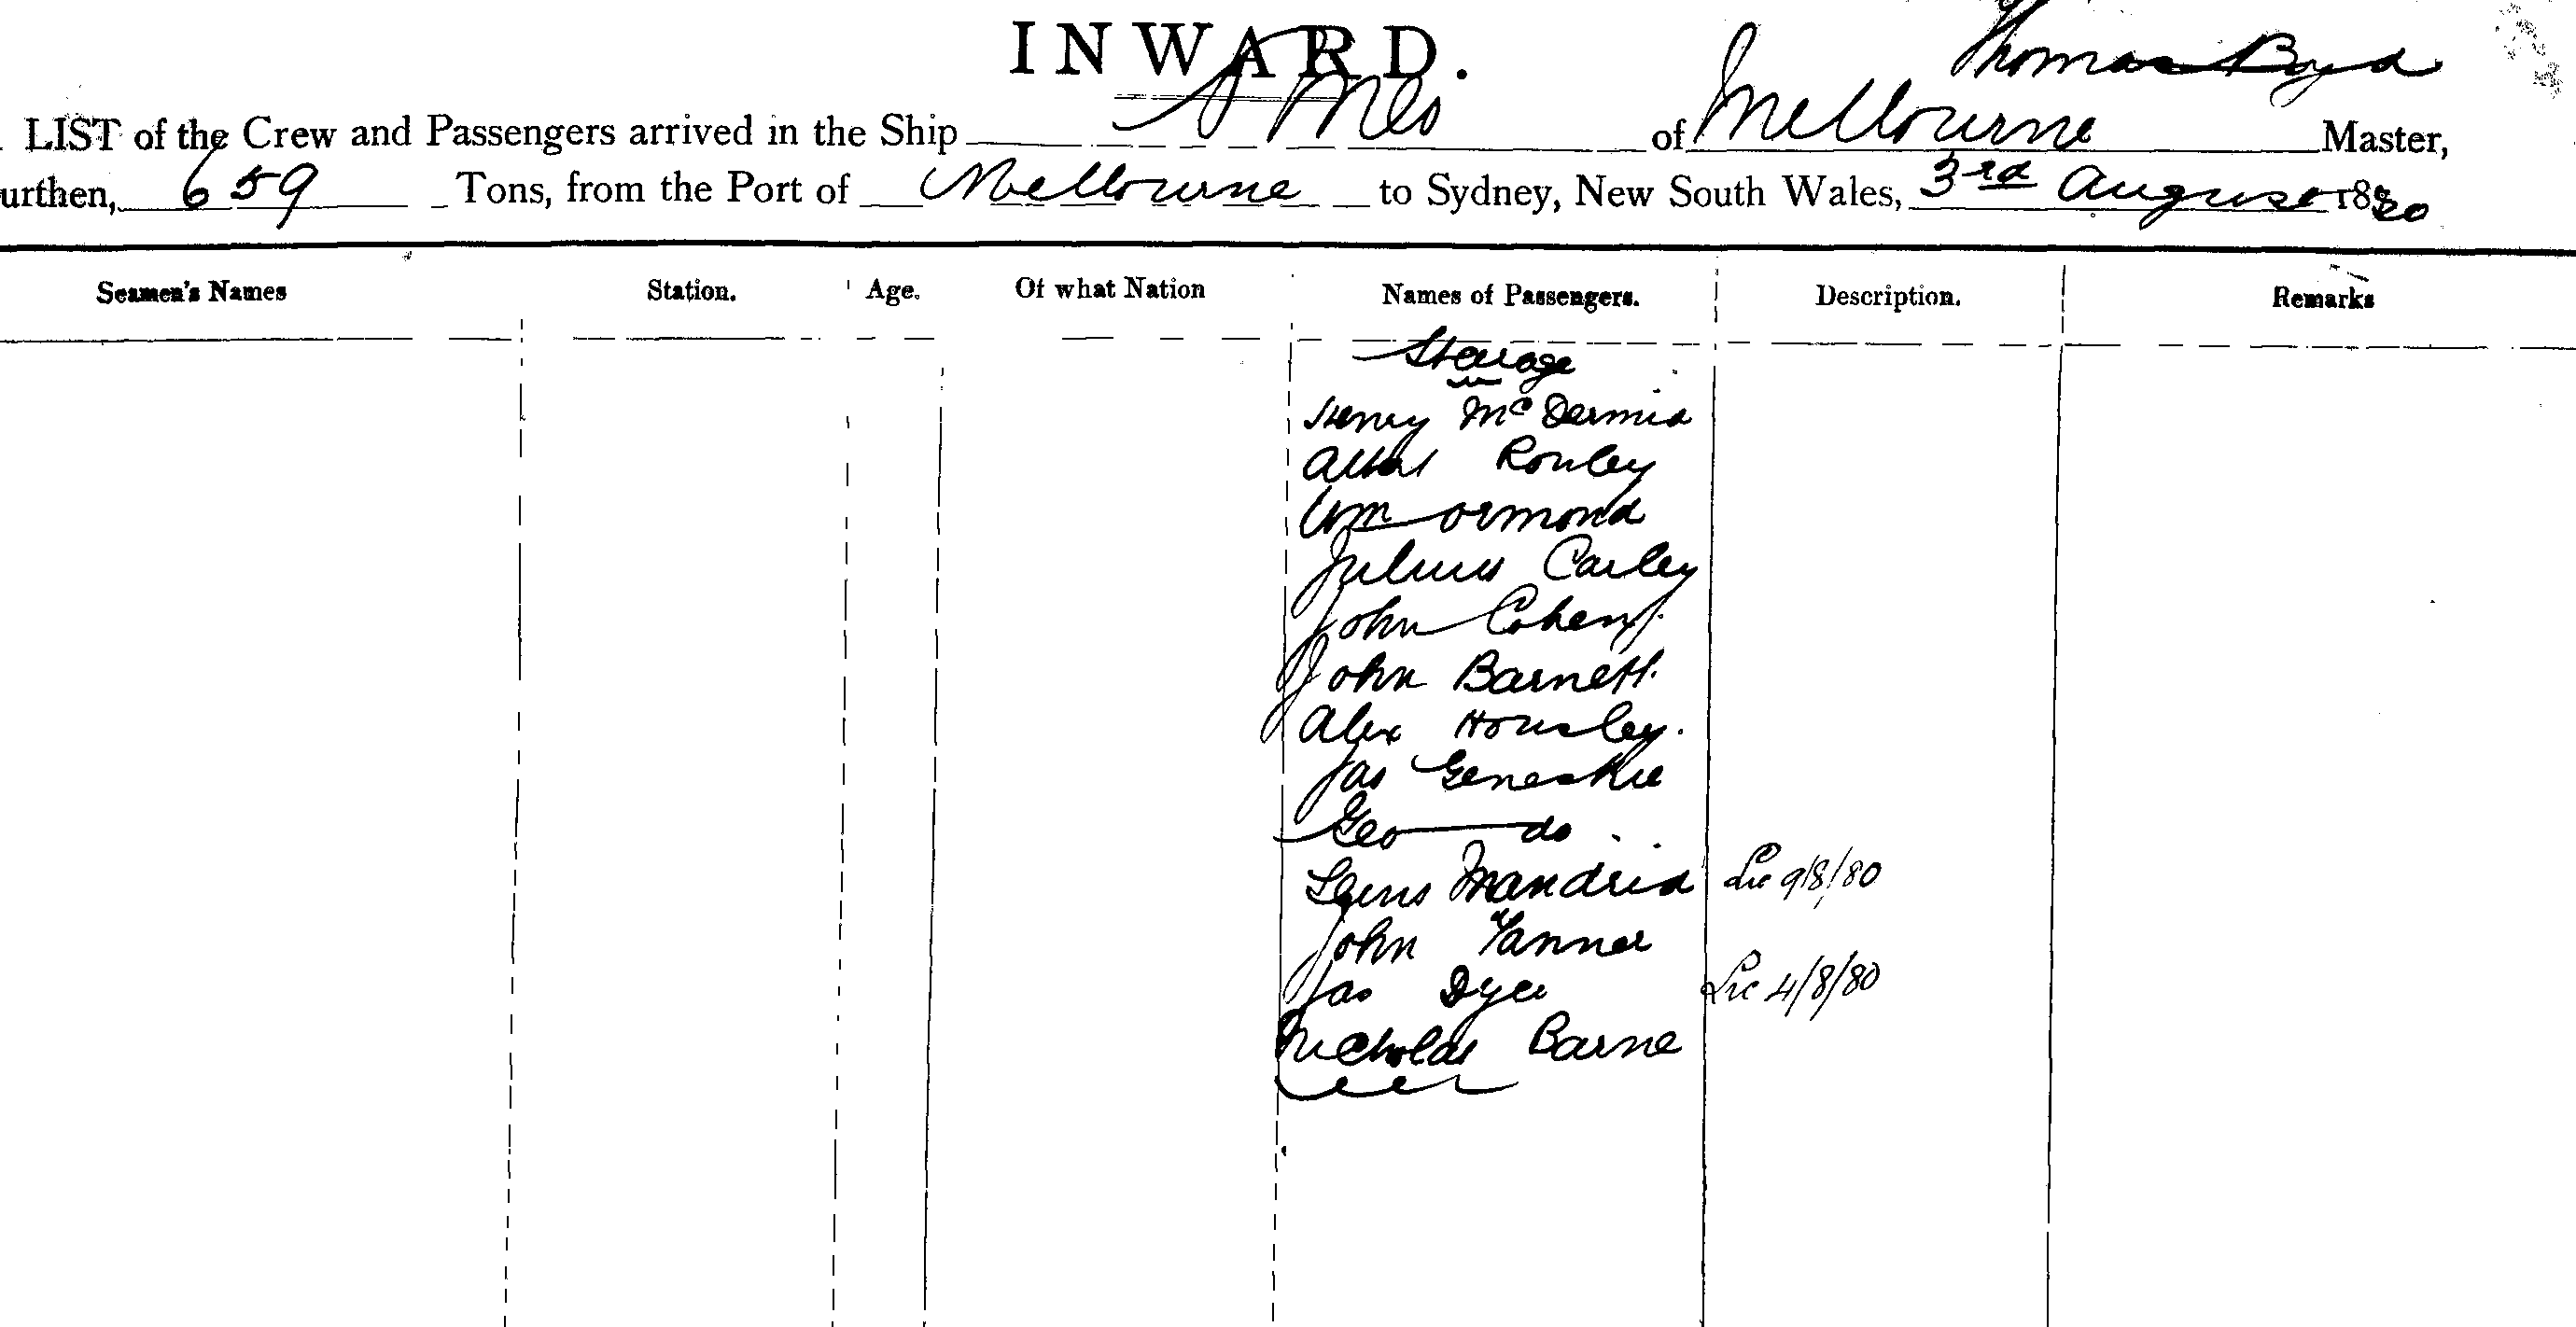 INWARD.
Thomas Boyd
LIST of the Crew and Passengers arrived in the Ship of Melbourne Master,
urthen, 659 Tons, from the Port of Melbourne to Sydney, New South Wales, 3rd August 1880
Seamen's Names Station. Age. Of what Nation Names of Passengers. Description. Remarks
Steerage
Henry McDermid
Albert Rowley
Wm Ormond
Julius Carley
John Cohen
John Barnett.
Alex Housley.
Jas Geneskie
Geo do
Mandrid 9/8/80
John Tanner
Jas Dyer 4/8/80
Nicholas Barne